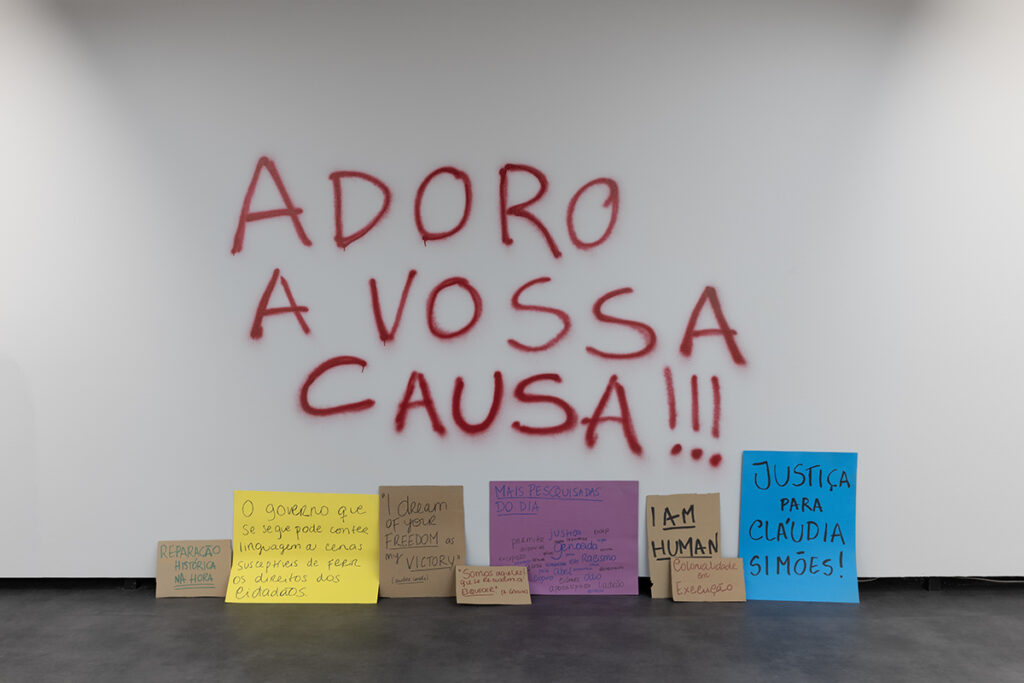 ADORO
A VOSSA
CAUSA!!!
REPARAÇÃO
HISTÓRICA
NA HORA
O governo que
se segue pode conter
linguagem e cenas
susceptíveis de ferir
os direitos dos
cidadãos.
"I dream
of your
FREEDOM as
my VICTORY"
"Somos aqueles
que se recusaram a
ESQUECER"
MAIS PESQUISADAS
DO DIA
permite justiça
Genocida
Racismo
Abril
apocalíptico ladrão
I AM
HUMAN
Colonialidade
em
Execução
JUSTIÇA
PARA
CLÁUDIA
SIMÕES!